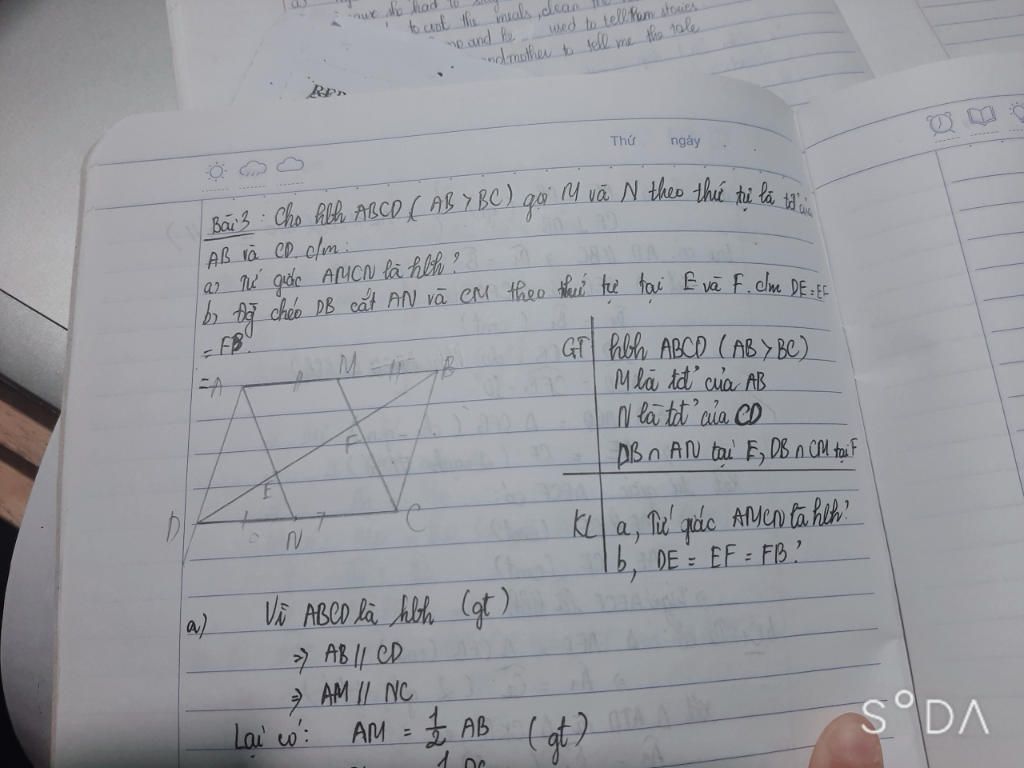 to cook the meals, clean the
me and he used to tell them stories
and mother to tell me the tale
Thứ ngày
Bài 3: Cho hbh ABCD (AB > BC) gọi M và N theo thứ tự là tđ' của
AB và CD. c/m:
a, Tứ giác AMCN là hbh?
b, Đg̃ chéo DB cắt AN và CM theo thứ tự tại E và F. c/m DE = EF
= FB.
A M B
F
E
D N C
GT hbh ABCD (AB > BC)
M là tđ' của AB
N là tđ' của CD
DB ∩ AN tại E, DB ∩ CM tại F
KL a, Tứ giác AMCN là hbh?
b, DE = EF = FB?
a) Vì ABCD là hbh (gt)
=> AB // CD
=> AM // NC
Lại có: AM = 1/2 AB (gt)
SODA